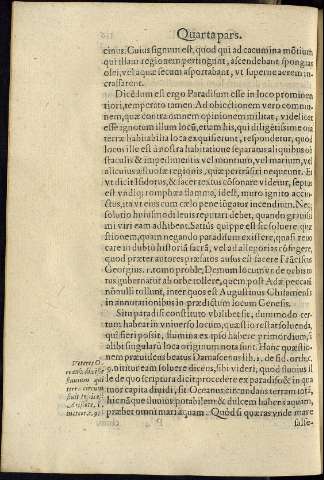 Quarta pars.
cinus. Cuius signum est, quod qui ad cacumina mõtium
qui illam regionem pertingunt, ascendebant spongias
olei, vel aquæ secum asportabant, vt superne aerem in-
crassarent.
Dicẽdum est ergo Paradisum esse in loco prominen
tiori, temperato tamen. Ad obiectionem vero commu-
nem, quæ contra omnem opinionem militat, videlicet
esse ignotum illum locũ, etiam his, qui diligẽtissime oĩa
terræ habitabilia loca exquisierunt, respondetur, quod
locus ille est à nostra habitatione separatus aliquibus ob
staculis & impedimentis vel montium, vel marium, vel
alicuius æstuosæ regionis, quæ pertrãsiri nequeunt. Et
vt dicit Isidorus, & facer textus consonare videtur, septus
est vndiq; romphæa flammea, idest, muro ignito accin-
ctus, ita vt eius cum cælo pene iũgatur incendium. Neq
solutio huiusmodi leuis reputari debet, quando grauissi
mi viri eam adhibent. Satius quippe est sic soluere, quæ
stionem, quam negando paradisum existere, quasi revo
care in dubiũ historiã sacrã, vel ad allegorias cõfugere,
quod præter autores præfatos ausus est facere Frãciscus
Georgius. 1. tomo proble. Demum locum vnde orbis to
tus gubernatur ab orbe tollere, quem post Adæ peccatũ
nõnulli tollunt, inter quos est Augustinus Chisamensis
in annotationibus in prædictum locum Genesis.
Situ paradisi constituto vbilibet sit, dummodo cer-
tum habeatur in vniverso locum, quæstio restat soluenda,
qui fieri possit, flumina ex ipso habere primordium, si
alibi singularũ loca originum nota sunt. Hanc quæstio-
nem præuidens beatus Damascenus lib. 2. de fid. orth. c.
9. nititur eam soluere dicens, sibi videri, quod fluuius il
le de quo scriptura dicit procedere ex paradiso & in qua
tuor capita diuidi, sit Oceanus circundans terram totã,
hicnãque fluuios potabilem & dulcem habens aquam,
præbet omni mari aquam. Quòd si quæras vnde mare
salse-